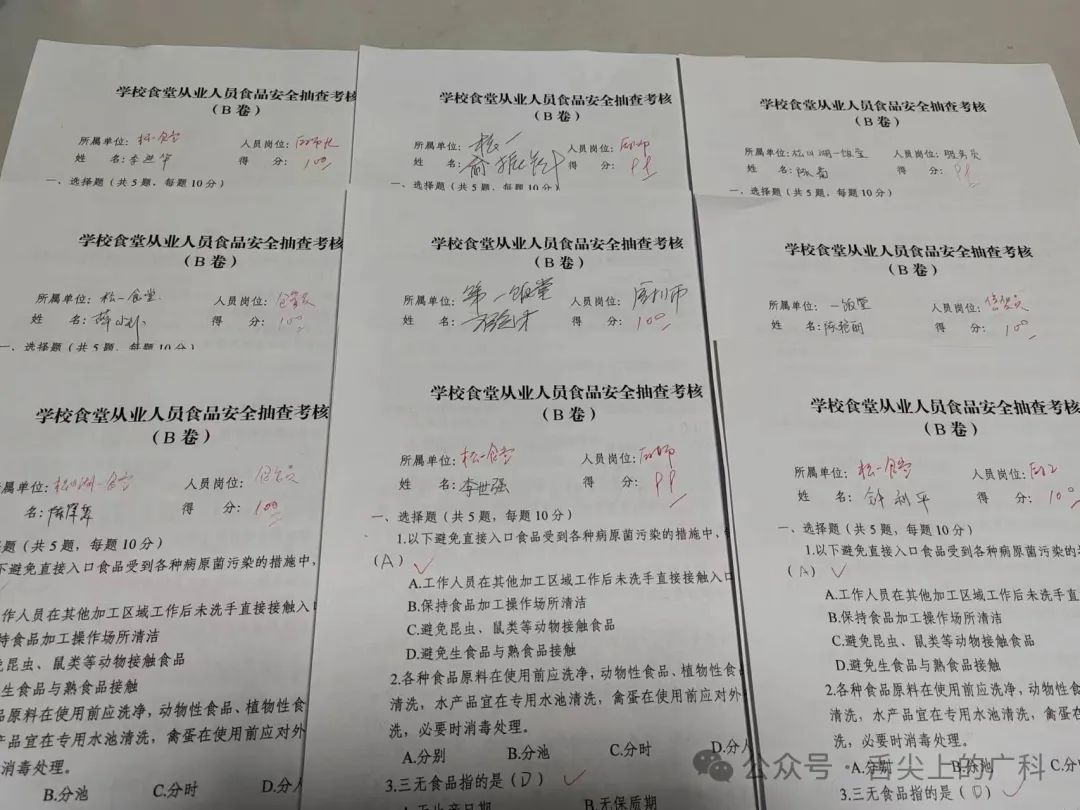 学校食堂从业人员食品安全抽查考核
（B 卷）
所属单位：松一食堂 人员岗位：厨师长
姓 名：李世华 得 分：100
一、选择题（共 5 题，每题 10 分）
学校食堂从业人员食品安全抽查考核
（B 卷）
所属单位：松一 人员岗位：厨师
姓 名：俞振兴 得 分：
一、选择题（共 5 题，每题 10 分）
学校食堂从业人员食品安全抽查考核
（B 卷）
所属单位：松山湖一饭堂 人员岗位：服务员
姓 名：陈 得 分：
一、选择题（共 5 题，每题 10 分）
学校食堂从业人员食品安全抽查考核
（B 卷）
所属单位：松一食堂 人员岗位：仓管员
姓 名： 得 分：100
一、选择题（共 5 题，每题 10 分）
学校食堂从业人员食品安全抽查考核
（B 卷）
所属单位：第一饭堂 人员岗位：厨师
姓 名： 得 分：100
学校食堂从业人员食品安全抽查考核
（B 卷）
所属单位：一饭堂 人员岗位：
姓 名：陈艳丽 得 分：100
学校食堂从业人员食品安全抽查考核
（B 卷）
属单位：松山湖一食堂 人员岗位：
名：陈 得 分：100
题（共 5 题，每题 10 分）
避免直接入口食品受到各种病原菌污染的措施中，
作人员在其他加工区域工作后未洗手直接接触入
持食品加工操作场所清洁
昆虫、鼠类等动物接触食品
生食品与熟食品接触
品原料在使用前应洗净，动物性食品、植物性食
产品宜在专用水池清洗，禽蛋在使用前应对外
消毒处理。
B.分池 C.分时 D.分人
学校食堂从业人员食品安全抽查考核
（B 卷）
所属单位：松一食堂 人员岗位：厨师
姓 名：李世强 得 分：
一、选择题（共 5 题，每题 10 分）
1.以下避免直接入口食品受到各种病原菌污染的措施中，
（A）
A.工作人员在其他加工区域工作后未洗手直接接触入口
B.保持食品加工操作场所清洁
C.避免昆虫、鼠类等动物接触食品
D.避免生食品与熟食品接触
2.各种食品原料在使用前应洗净，动物性食品、植物性食
清洗，水产品宜在专用水池清洗，禽蛋在使用前应对外
洗，必要时消毒处理。
A.分别 B.分池 C.分时 D.分人
3.三无食品指的是（D）
A.无生产日期 B.无保质期
学校食堂从业人员食品安全抽查考核
（B 卷）
所属单位：松一食堂 人员岗位：厨工
姓 名：钟利平 得 分：100
一、选择题（共 5 题，每题 10 分）
1.以下避免直接入口食品受到各种病原菌污染的
（A）
A.工作人员在其他加工区域工作后未洗手直
B.保持食品加工操作场所清洁
C.避免昆虫、鼠类等动物接触食品
D.避免生食品与熟食品接触
2.各种食品原料在使用前应洗净，动物性食品
清洗，水产品宜在专用水池清洗，禽蛋在
洗，必要时消毒处理。
A.分别 B.分池 C.分
3.三无食品指的是（D）
公众号·舌尖上的广科